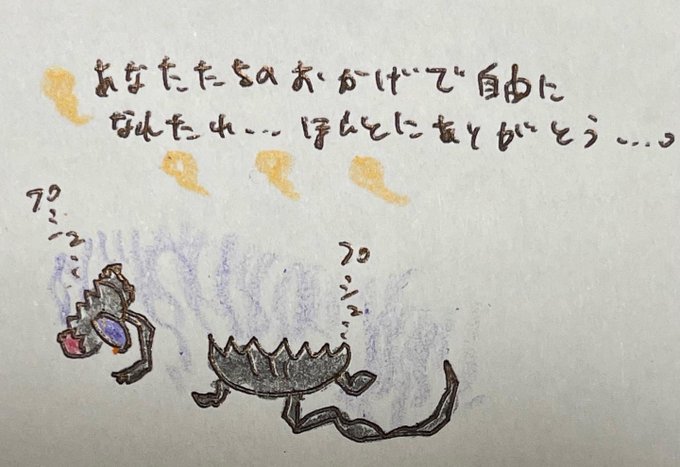 あなたたちのおかげで自由に
なれたわ… ほんとにありがとう…。
プシュ…
プシュ…